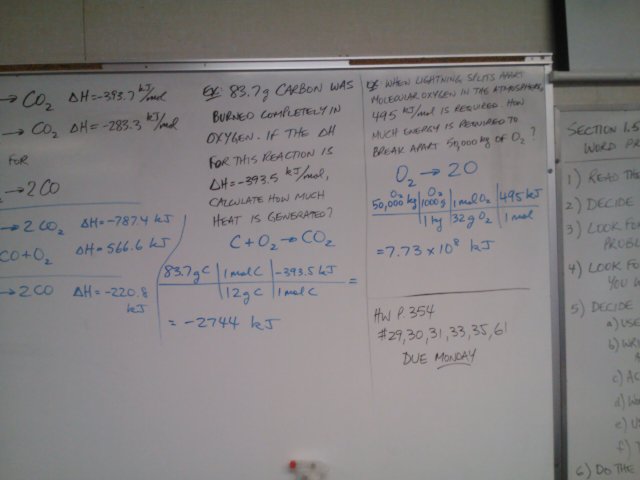 → CO₂ ΔH = -393.7 kJ/mol
→ CO₂ ΔH = -283.3 kJ/mol
FOR
→ 2CO
→ 2 CO₂ ΔH = -787.4 kJ
CO + O₂ ΔH = 566.6 kJ
→ 2 CO ΔH = -220.8 kJ
EX: 83.7g CARBON WAS
BURNED COMPLETELY IN
OXYGEN. IF THE ΔH
FOR THIS REACTION IS
ΔH = -393.5 kJ/mol,
CALCULATE HOW MUCH
HEAT IS GENERATED?
C + O₂ → CO₂
83.7g C | 1 mol C | -393.5 kJ
12 g C | 1 mol C =
= -2744 kJ
EX: WHEN LIGHTNING SPLITS APART
MOLECULAR OXYGEN IN THE ATMOSPHERE,
495 kJ/mol IS REQUIRED. HOW
MUCH ENERGY IS REQUIRED TO
BREAK APART 50,000 kg OF O₂?
O₂ → 2O
50,000 kg O₂ | 1000 g O₂ | 1 mol O₂ | 495 kJ
1 kg | 32 g O₂ | 1 mol
= 7.73 x 10⁸ kJ
HW P. 354
#29, 30, 31, 33, 35, 61
DUE MONDAY
SECTION 1.5
WORD PR
1) READ TH
2) DECIDE
3) LOOK FO
PROBL
4) LOOK FO
YOU W
5) DECIDE
a) USE
b) WRI
c) AC
d) WO
e) U
f)
6) DO THE